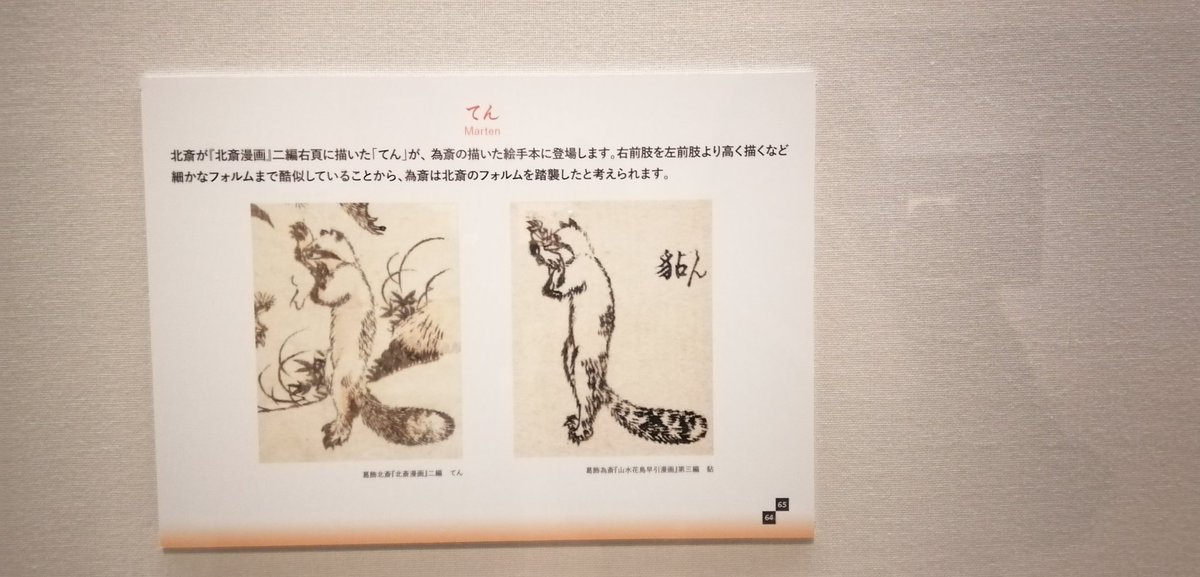 てん
Marten
北斎が『北斎漫画』二編右頁に描いた「てん」が、為斎の描いた絵手本に登場します。右前肢を左前肢より高く描くなど
細かなフォルムまで酷似していることから、為斎は北斎のフォルムを踏襲したと考えられます。
てん
貂ん
葛飾北斎『北斎漫画』二編 てん
葛飾為斎『山水花鳥早引漫画』第三編 鮎
65
64